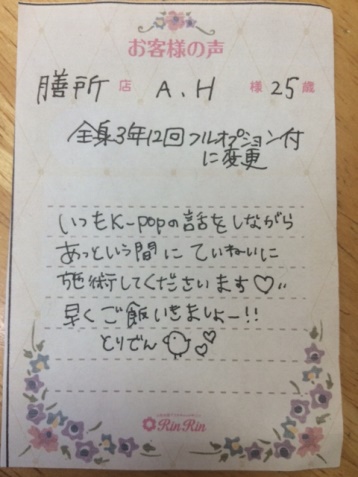 お客様の声
膳所 店 A.H 様 25 歳
全身3年12回フルオプション付
に変更
いつもK-popの話をしながら
あっという間にていねいに
施術してくださいます♡〃
早くご飯いきましょー!!
とりでん
RinRin